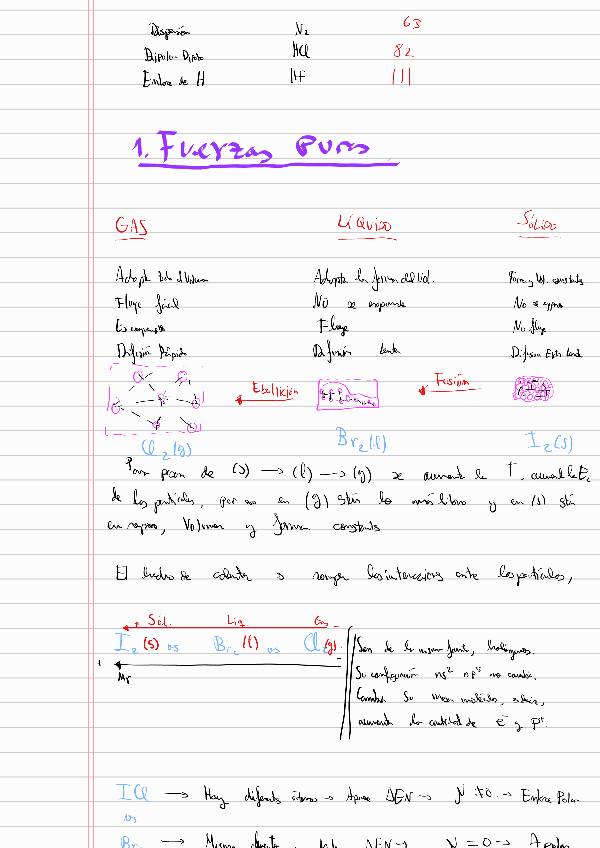 Dispersión N₂ 63
Dipolo-Dipolo HCl 82.
Enlace de H HF 111
1. Fuerzas puras
GAS LÍQUIDO SÓLIDO
Adopta todo el volumen Adopta la forma del vol. Forma y Vol. constantes
Fluye fácil NO se expande No se expande
Es compresible Fluye No fluye
Difusión Rápida Difusión lenta Difusión Extr. lenta
Ebullición Fusión
Cl₂(g) Br₂(l) I₂(s)
Para pasar de (s) → (l) → (g) se aumenta la T, aumenta la Ec
de las partículas, por eso en (g) están lo más libre y en (s) están
en reposo, Volumen y forma constante
El hecho de calentar es romper las interacciones entre las partículas,
Sól. Liq Gas
I₂(s) vs Br₂(l) vs Cl₂(g)
Mr
Son de la misma familia, halógenos.
Su configuración ns² np⁵ no cambia.
Cambia su masa molecular,
aumenta la cantidad de e⁻ y p⁺.
ICl → Hay diferentes átomos → Aparece ΔEN → μ≠0 → Enlace Polar
vs
Br₂ → Mismo ΔEN → μ=0 → Apolar